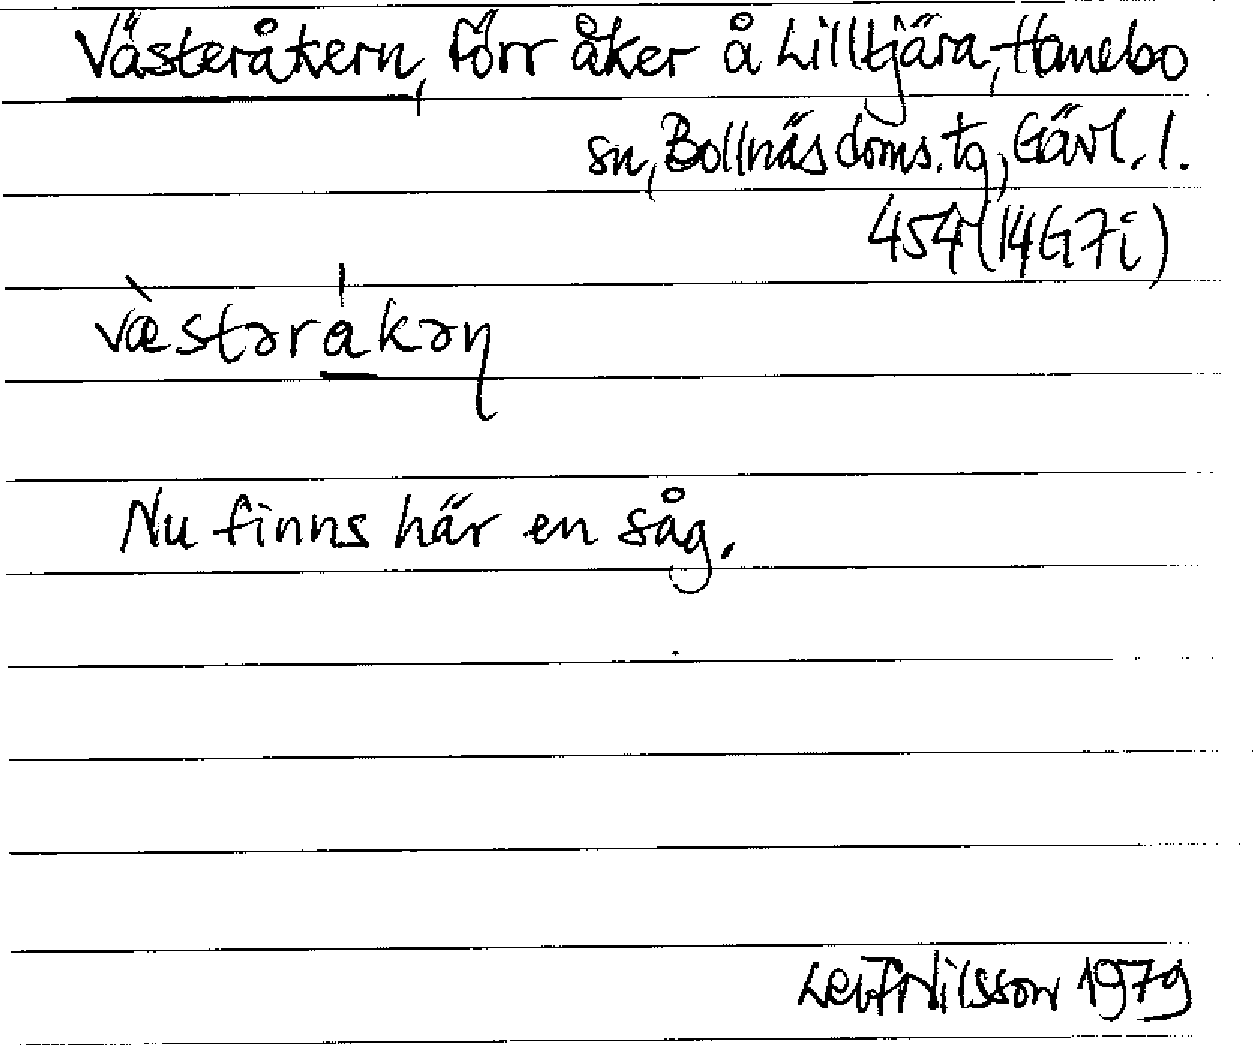 Västeråkern, förr åker å Lilltjära, Hanebo
sn, Bollnäs doms.tg, Gävl. l.
454 (14G7i)
væ̀stərákəɳ
Nu finns här en såg.
Leif Nilsson 1979